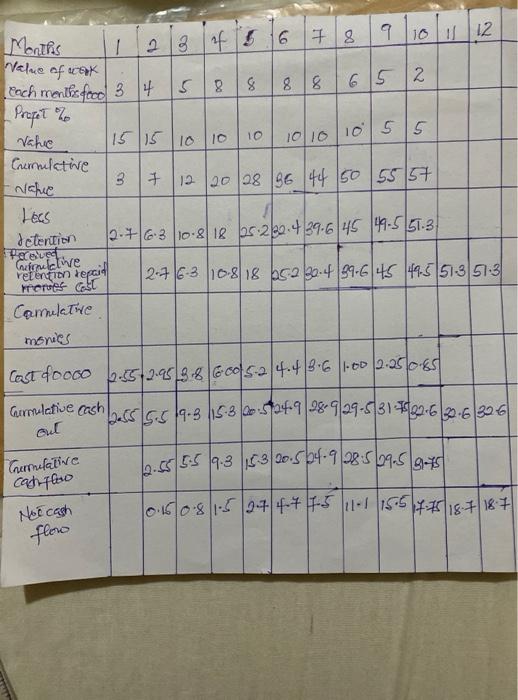 Months 1 2 3 4 5 6 7 8 9 10 11 12
Value of work
each months £000 3 4 5 8 8 8 8 6 5 2
Profit %
Value 15 15 10 10 10 10 10 10 5 5
Cumulative
Value 3 7 12 20 28 36 44 50 55 57
Less
detention 2.7 6.3 10.8 18 25.2 32.4 39.6 45 49.5 51.3
Received
Cumulative
retention repaid 2.7 6.3 10.8 18 25.2 32.4 39.6 45 49.5 51.3 51.3
Cost
Cumulative
monies
Cost £0000 2.55 2.95 3.8 6.00 5.2 4.4 3.6 1.00 2.25 0.85
Cumulative cash 2.55 5.5 9.3 15.3 20.5 24.9 28.9 29.5 31.75 32.6 32.6 32.6
out
Cumulative 2.55 5.5 9.3 15.3 20.5 24.9 28.5 29.5 31.75
cash flow
Net cash 0.15 0.8 1.5 2.7 4.7 7.5 11.1 15.5 17.75 18.7 18.7
flow